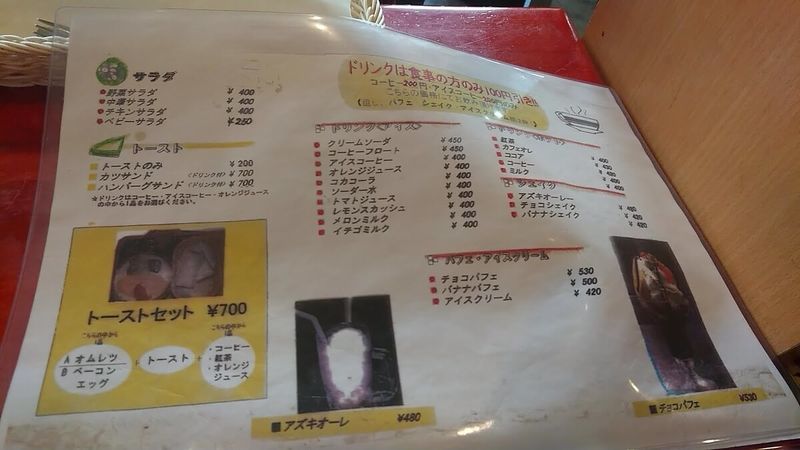 サラダ
野菜サラダ ¥ 400
中華サラダ ¥ 400
チキンサラダ ¥ 400
ベビーサラダ ¥ 250
トースト
トーストのみ ¥ 200
カツサンド (ドリンク付) ¥ 700
ハンバーグサンド (ドリンク付) ¥ 700
※ドリンクはコーヒー・アイスコーヒー・オレンジジュース
の中から1品をお選びください。
トーストセット ¥700
こちらの中から
1品
A オムレツ
B ベーコン
エッグ
+トースト+
こちらの中から
1品
・コーヒー
・紅茶
・オレンジ
ジュース
ドリンクは食事の方のみ100円引き!!
コーヒー200円
ドリンク(アイス)
クリームソーダ ¥ 450
コーヒーフロート ¥ 450
アイスコーヒー ¥ 400
オレンジジュース ¥ 400
コカコーラ ¥ 400
ソーダー水 ¥ 400
トマトジュース ¥ 400
レモンスカッシュ ¥ 400
メロンミルク ¥ 400
イチゴミルク ¥ 400
紅茶
カフェオレ
ココア
コーヒー
ミルク
シェイク
アズキオーレー
チョコシェイク
バナナシェイク
パフェ・アイスクリーム
チョコパフェ ¥ 530
バナナパフェ ¥ 500
アイスクリーム ¥ 420
アズキオーレ ¥480
チョコパフェ ¥530